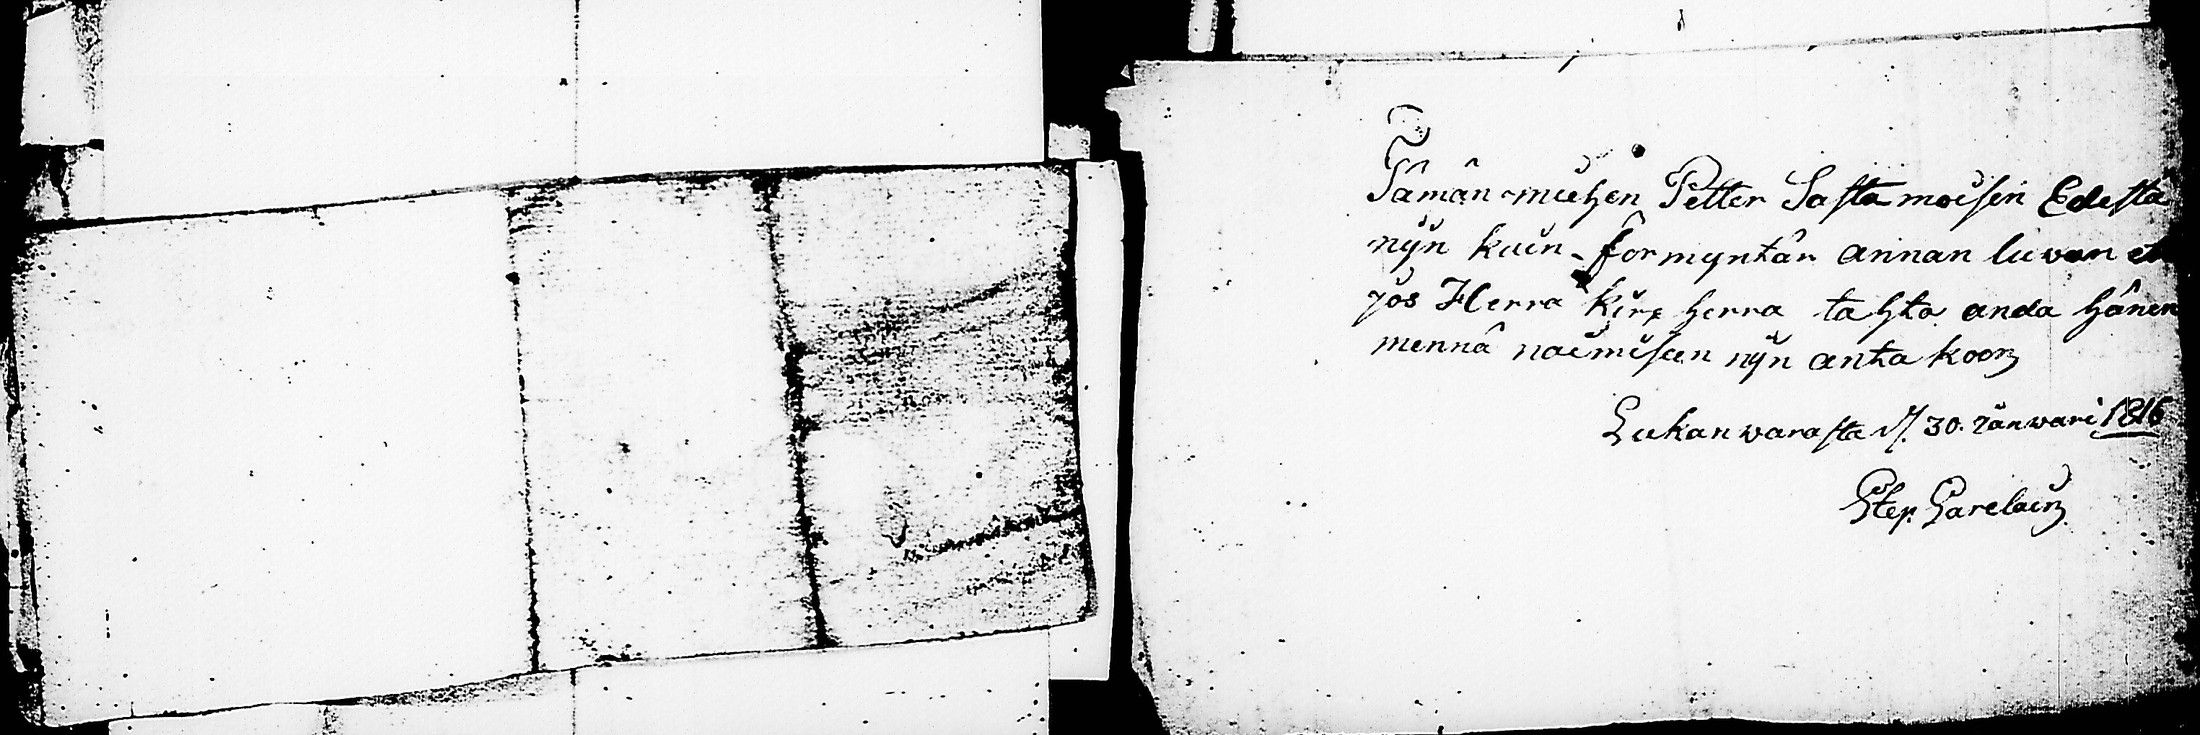 Tämän miehen Petter Sastamoisen Edestä
nijn kuin formyntär annan luvan et
jos Herra kirk herra tahto anda hänen
mennä naimisen nijn anta koon
Lukanwarasta d. 30. Januari 1816
Step. Parelain